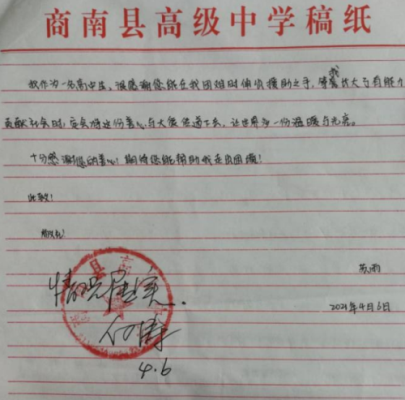 商南县高级中学稿纸
我作为一名高中生,很感谢您能在我困难时伸演援助之手,等我长大了有能力
贡献社会时,定会将这份善心与大爱传递下去,让世界多一份温暖与光亮。
十分感谢您的善心!期待您能帮助我走出困境!
此致!
敬礼!
苏雨
2021年4月6日
县高
情况属实。
4.6